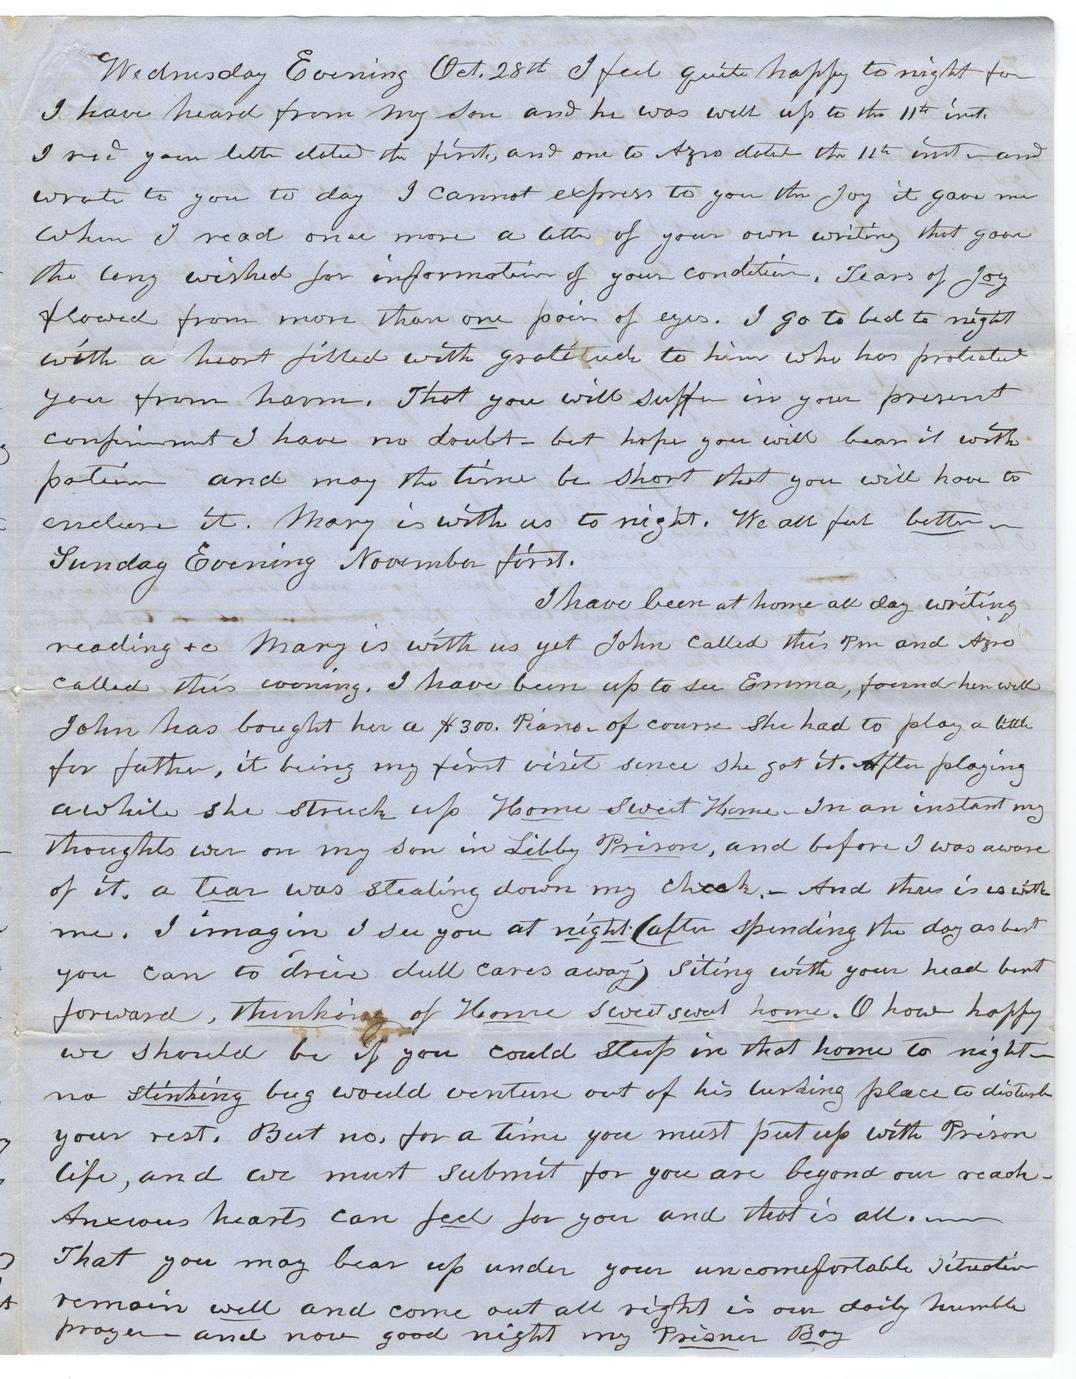 Wednesday Evening Oct. 28th I feel quite happy to night for
I have heard from my son and he was well up to the 11th inst.
I recd your letter dated the first, and one to Azro dated the 11th inst - and
wrote to you to day I cannot express to you the Joy it gave me
when I read once more a letter of your own writing that gave
the long wished for information of your condition. Tears of Joy
flowed from more than one pair of eyes. I go to bed to night
with a heart filled with gratitude to him who has protected
you from harm. That you will suffer in your present
confinement I have no doubt - but hope you will bear it with
patience and may the time be short that you will have to
endure it. Mary is with us to night. We all feel better -
Sunday Evening November first.
I have been at home all day writing
reading &c Mary is with us yet John called this Pm and Azro
called this evening. I have been up to see Emma, found her well
John has bought her a $300. Piano - of course she had to play a little
for father, it being my first visit since she got it. After playing
awhile she struck up Home Sweet Home - In an instant my
thoughts wer on my son in Libby Prison, and before I was aware
of it. a tear was stealing down my cheek. - And thus is is with
me. I imagin I see you at night (after spending the day as best
you can to drive dull cares away) Siting with your head bent
forward, thinking of Home sweet sweet home. O how happy
we should be if you could sleep in that home to night -
no stinking bug would venture out of his lurking place to disturb
your rest. But no, for a time you must put up with Prison
life, and we must submit for you are beyond our reach -
Anxious hearts can feel for you and that is all. -
That you may bear up under your uncomefortable situation
remain well and come out all right is our daily humble
prayer - and now good night my Prisner Boy